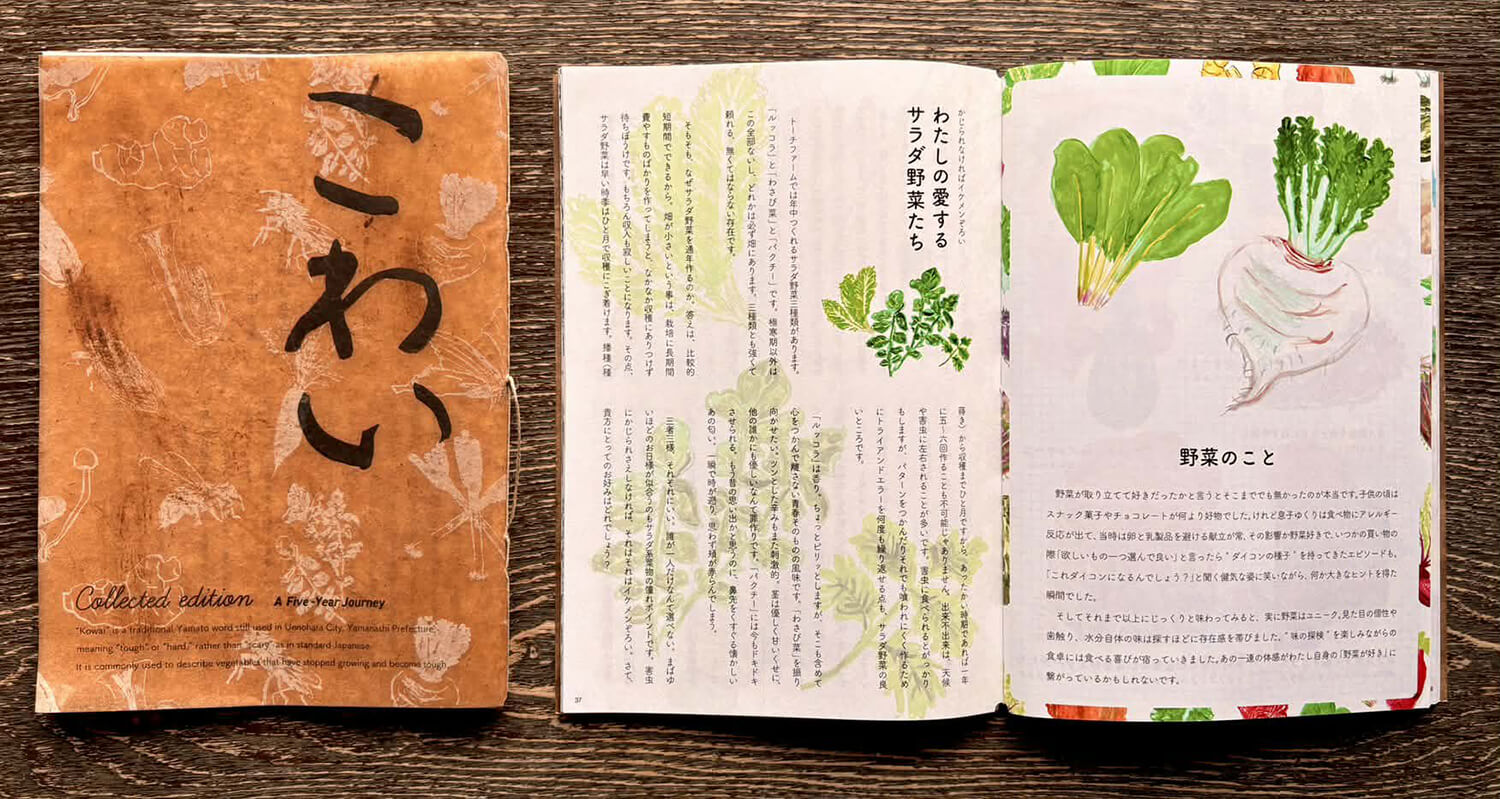 こわい
Collected edition A Five-Year Journey
"Kowai" is a traditional Yamato word still used in Uenohara City, Yamanashi Prefecture,
meaning "tough" or "hard," rather than "scary" as in standard Japanese.
It is commonly used to describe vegetables that have stopped growing and become tough
かじられなければイケメンぞろい
わたしの愛する
サラダ野菜たち
トーチファームでは年中つくれるサラダ野菜三種類があります。
「ルッコラ」と「わさび菜」と「パクチー」です。極寒期以外は
この全部ないし、どれかは必ず畑にあります。三種類とも強くて
頼れる、無くてはならない存在です。
そもそも、なぜサラダ野菜を通年作るのか。答えは、比較的
短期間でできるから。畑が小さいという事は、栽培に長期間
費やすものばかりを作ってしまうと、なかなか収穫にありつけず
待ちぼうけです。もちろん収入も寂しいことになります。その点、
サラダ野菜は早い時季はひと月で収穫にこぎ着けます。播種（種
蒔き）から収穫までひと月ですから、あったかい時期であれば一年
に五〜六回作ることも不可能じゃありません。出来不出来は、天候
や害虫に左右されることが多いです。害虫に食べられるとがっかり
もしますが、パターンをつかんだりそれでも喰われにくく作るため
にトライアンドエラーを何度も繰り返せる点も、サラダ野菜の良
いところです。
「ルッコラ」は香り。ちょっとピリッとしますが、そこも含めて
心をつかんで離さない青春そのものの風味です。「わさび菜」を振り
向かせたい。ツンとした辛みもまた刺激的。茎は優しく甘いくせに、
他の誰かにも優しいなんて罪作りです。「パクチー」には今もドキドキ
させられる。もう昔の思い出かと思うのに、鼻先をくすぐる懐かしい
あの匂い。一瞬で時が遡り、思わず頬が赤らんでしまう。
三者三様、それぞれにいい。誰が一人だけなんて選べない。まばゆ
いほどのお日様が似合うのもサラダ系葉物の憧れポイントです。害虫
にかじられさえしなければ、それはそれはイケメンぞろい。さて、
貴方にとってのお好みはどれでしょう？
37
野菜のこと
野菜が取り立てて好きだったかと言うとそこまででも無かったのが本当です。子供の頃は
スナック菓子やチョコレートが何より好物でした。けれど息子ゆくりは食べ物にアレルギー
反応が出て、当時は卵と乳製品を避ける献立が常、その影響か野菜好きで、いつかの買い物の
際「欲しいもの一つ選んで良い」と言ったら"ダイコンの種子"を持ってきたエピソードも。
「これダイコンになるんでしょう？」と聞く健気な姿に笑いながら、何か大きなヒントを得た
瞬間でした。
そしてそれまで以上にじっくりと味わってみると、実に野菜はユニーク。見た目の個性や
歯触り、水分自体の味は探すほどに存在感を帯びました。"味の探検"を楽しみながらの
食卓には食べる喜びが宿っていきました。あの一連の体感がわたし自身の「野菜が好き」に
繋がっているかもしれないです。